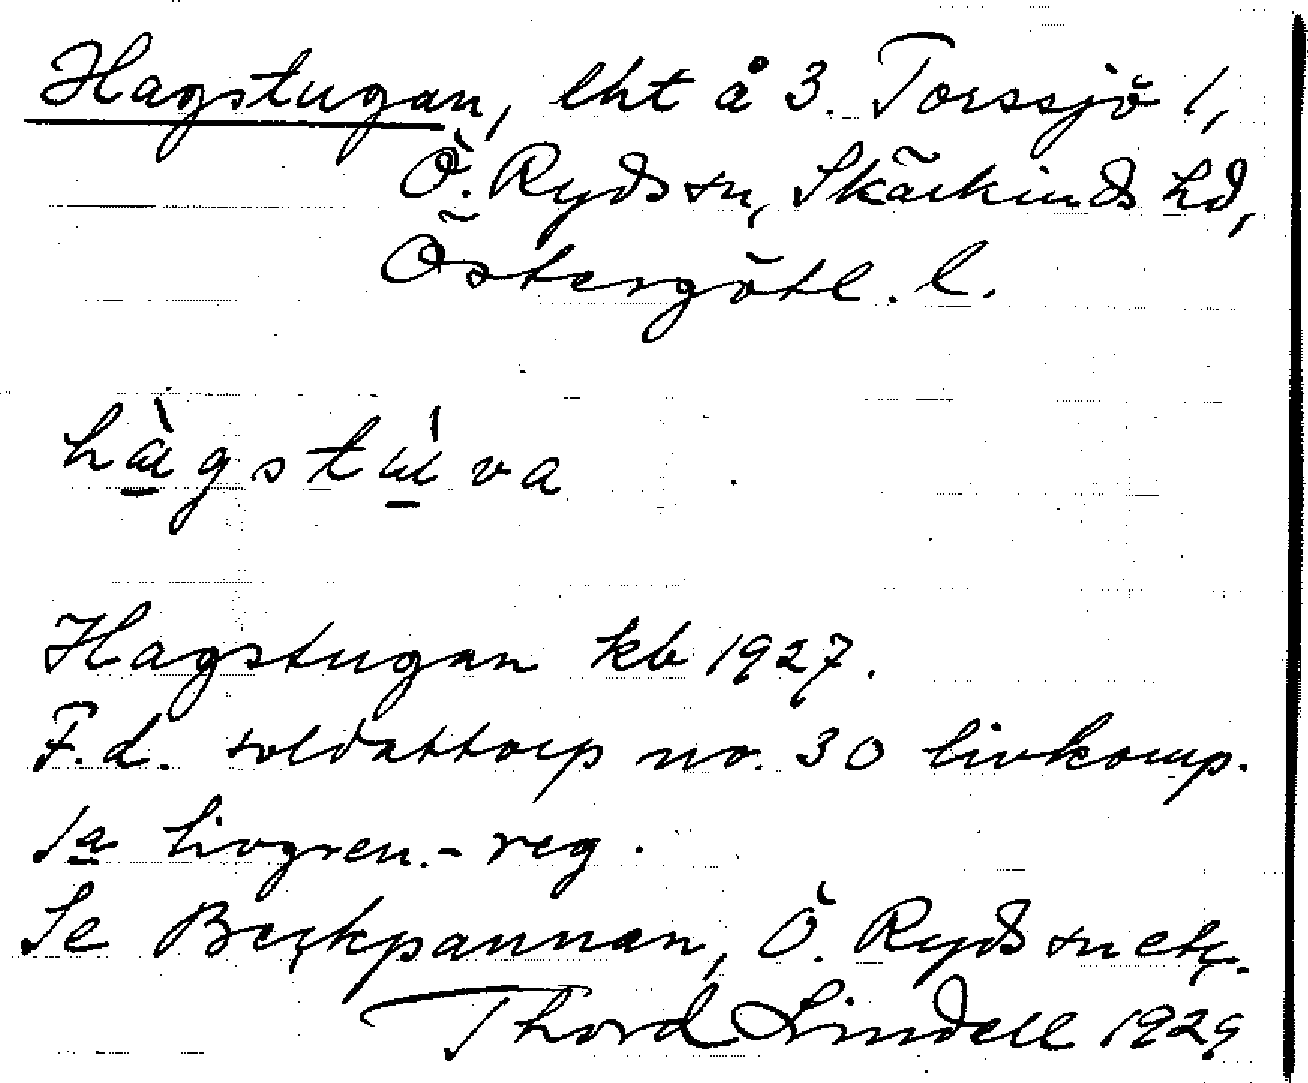 Hagstugan, lht å 3. Torssjö 1,
Ö. Ryds sn, Skärkinds hd,
Östergötl. l.
hàgstúva
Hagstugan kb 1927.
F.d. soldattorp no. 30 livkomp.
1a livgren.-reg.
Se Beckpannan, Ö. Ryds sn etc.
Thord Lindell 1929